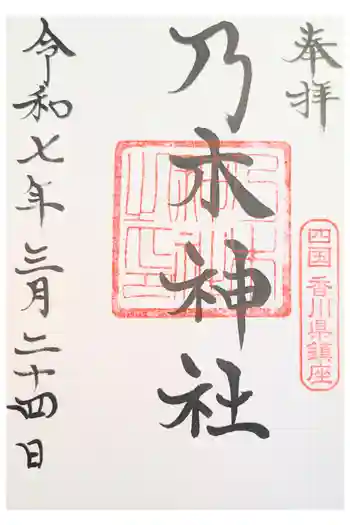 奉拝
四国 香川県鎮座
乃木神社
令和七年三月二十四日